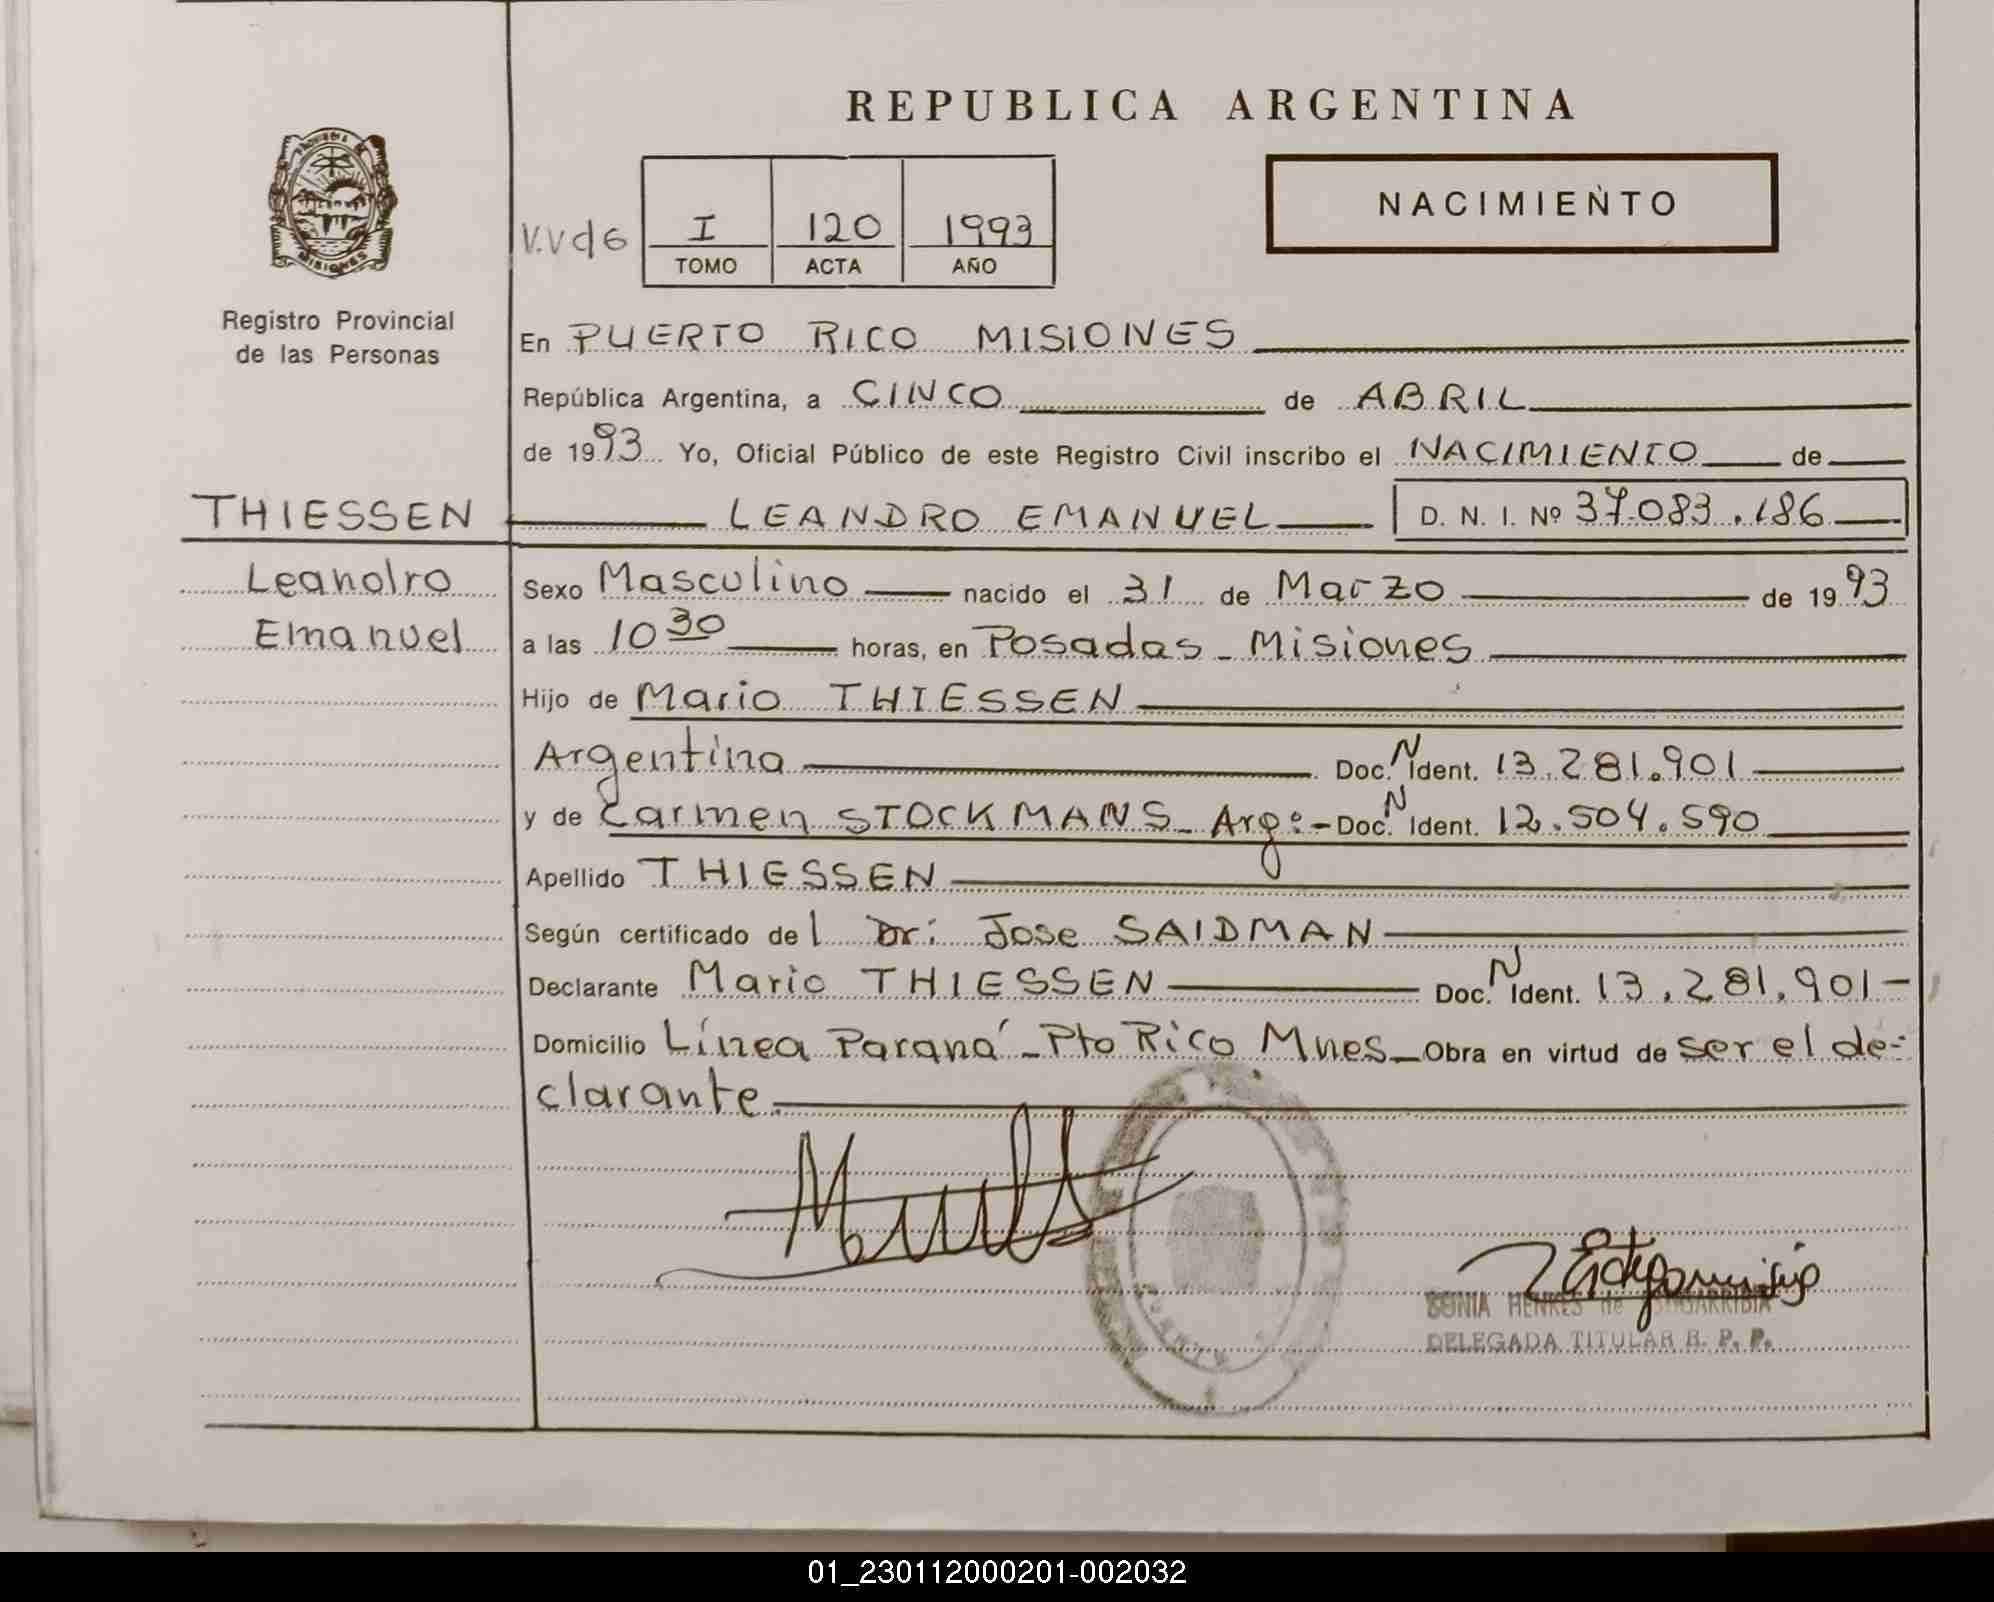 REPUBLICA ARGENTINA
PROVINCIA DE
MISIONES
Registro Provincial
de las Personas
V.Vdg
I 120 1993
TOMO ACTA AÑO
NACIMIENTO
En PUERTO RICO MISIONES
República Argentina, a CINCO de ABRIL
de 1993 Yo, Oficial Público de este Registro Civil inscribo el NACIMIENTO de
THIESSEN LEANDRO EMANUEL D. N. I. Nº 37.083.186
Leandro
Emanuel
Sexo Masculino nacido el 31 de Marzo de 1993
a las 10 30 horas, en Posadas - Misiones
Hijo de Mario THIESSEN
Argentina Doc. N Ident. 13.281.901
y de Carmen STOCKMANS - Arg: - Doc. N Ident. 12.504.590
Apellido THIESSEN
Según certificado del Dr: Jose SAIDMAN
Declarante Mario THIESSEN Doc. N Ident. 13.281.901-
Domicilio Línea Paraná - Pto Rico Mnes - Obra en virtud de ser el de-
clarante.
SONIA HENKES de
DELEGADA TITULAR R. P. P.
01_230112000201-002032